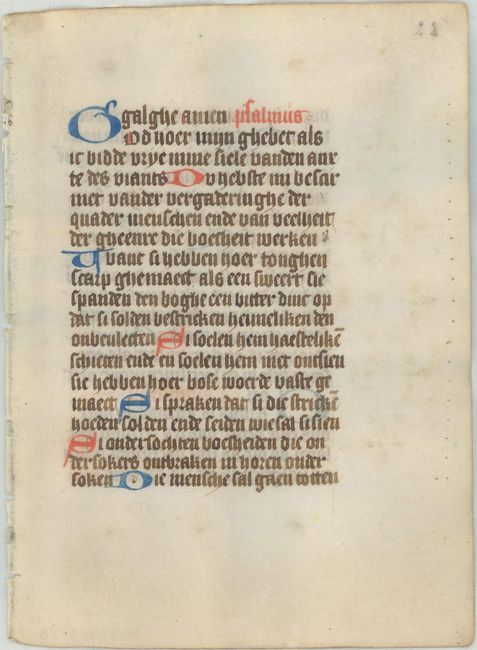 22
galghe amen psalmus
God hoer mijn ghebet als
ic bidde vrye mine siele vanden anx
te des viants Du hebste mi bescer
met vander vergaderinghe der
quader menschen ende van veelheit
der gheenre die boesheit werken
Want si hebben hoer tonghen
scarp ghemaect als een sweert sie
spanden den boghe een bitter dinc op
dat si solden bestricken heimeliken den
onbeulecten Si soelen hem haestelikē
schieten ende en soelen hem niet ontsien
sie hebben hoer bose woerde vaste ge
maect Si spraken dat si die strickē
hoeden solden ende seiden wie sal si sien
Si ondersochten boesheiden die on
dersokers ontbraken in horen onder
soken Die mensche sal gaen totten